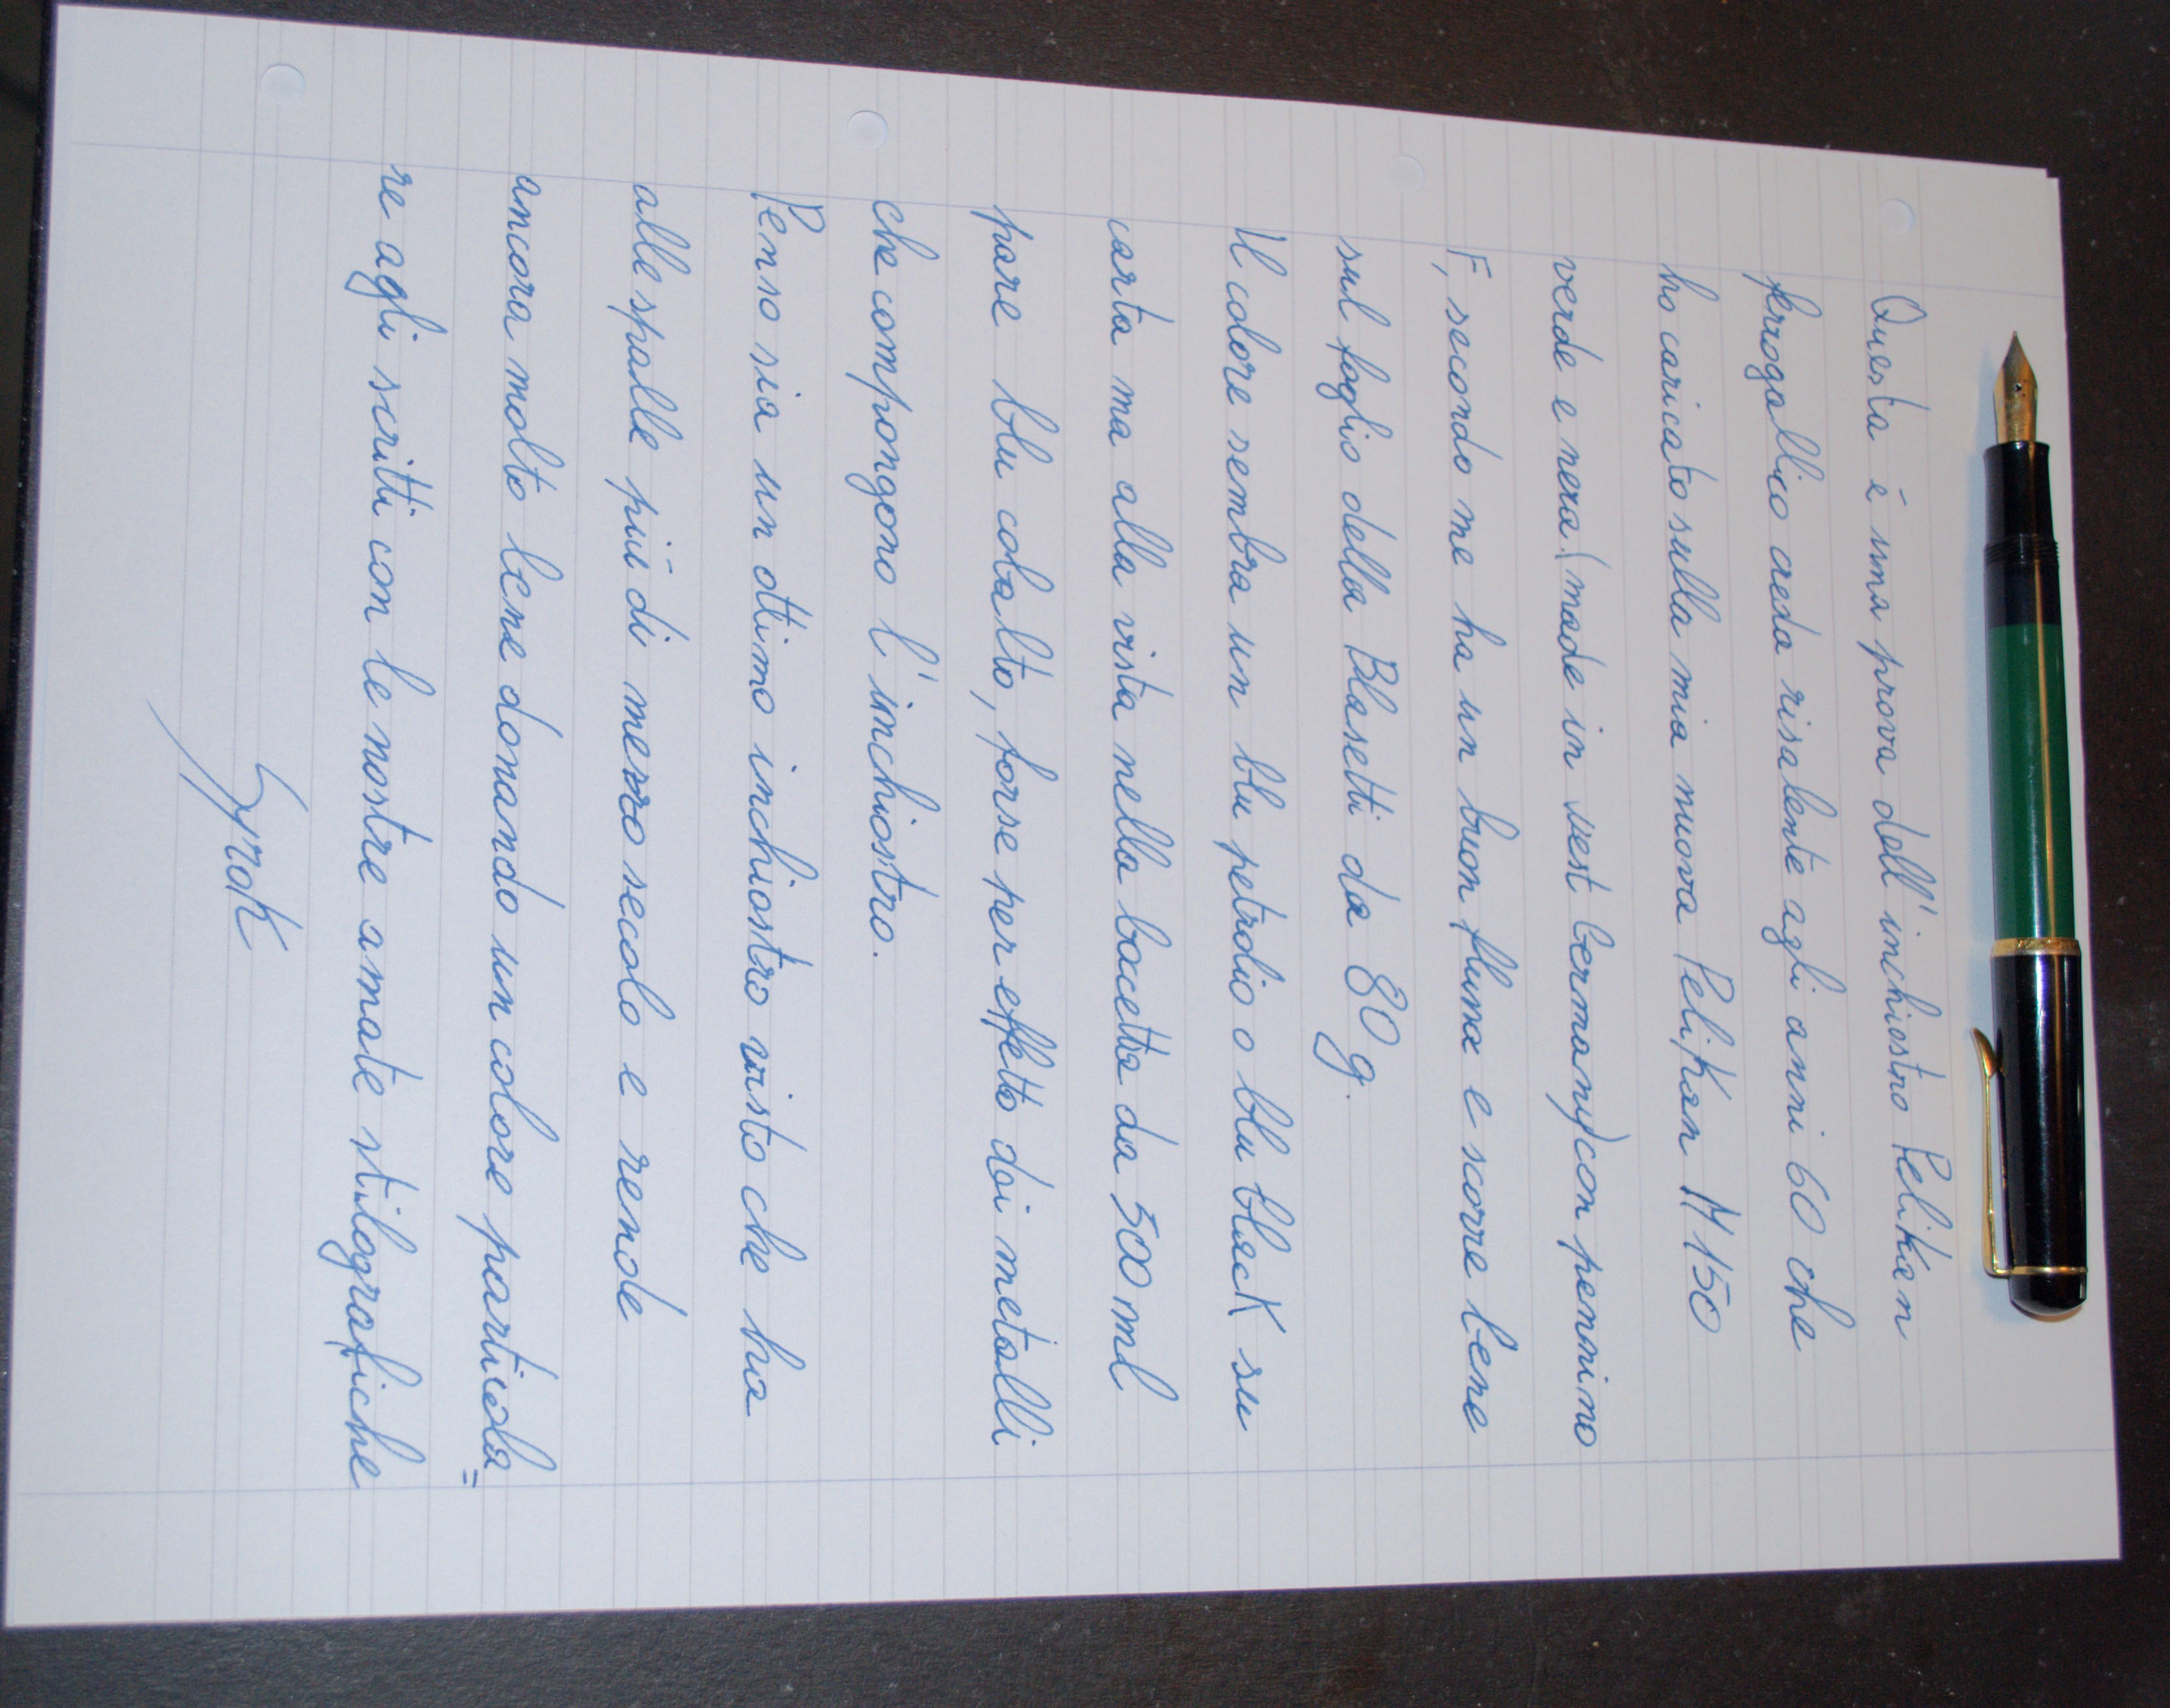 Questa è una prova dell'inchiostro Pelikan
ferrogallico credo risalente agli anni 60 che
ho caricato sulla mia nuova Pelikan M150
verde e nera (made in west Germany) con pennino
F, secondo me ha un buon flusso e scorre bene
sul foglio della Blasetti da 80 g.
Il colore sembra un blu petrolio o blu black su
carta ma alla vista nella boccetta da 500 ml
pare blu cobalto, forse per effetto dei metalli
che compongono l'inchiostro.
Penso sia un ottimo inchiostro visto che ha
alle spalle più di mezzo secolo e rende
ancora molto bene donando un colore particola=
re agli scritti con le nostre amate stilografiche
Syrok